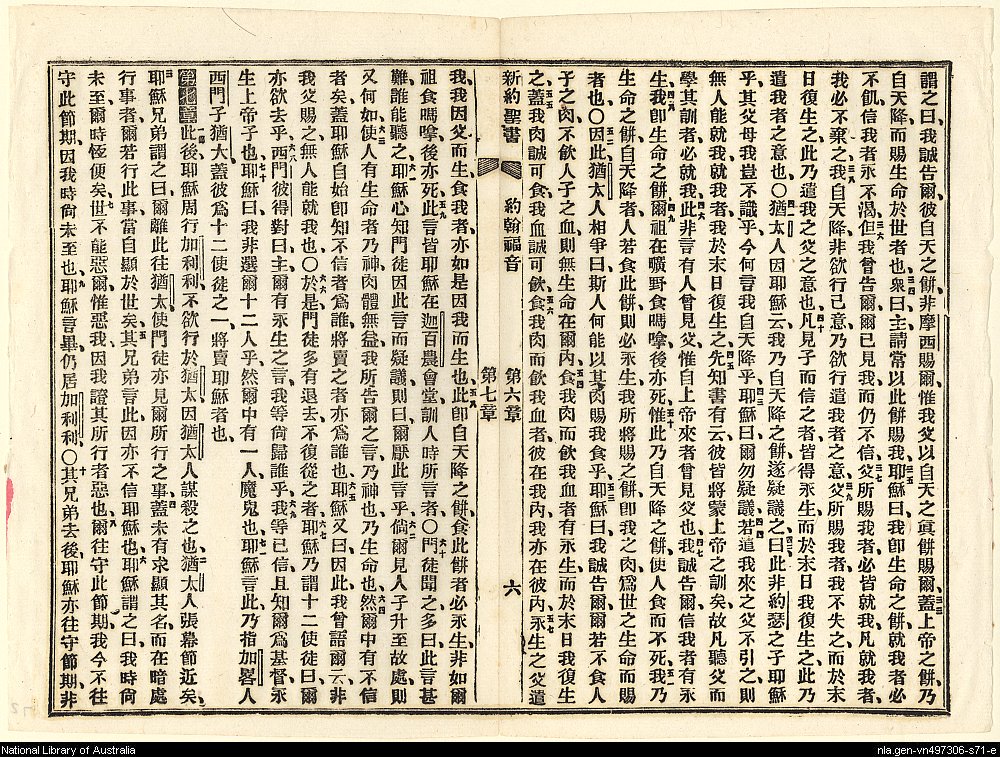 謂之曰我誠告爾彼自天之餅非摩西賜爾惟我父以自天之眞餅賜爾蓋上帝之餅乃
自天降而賜生命於世者也衆曰主請常以此餅賜我耶穌曰我卽生命之餅就我者必
不飢信我者永不渴但我曾告爾爾已見我而仍不信父所賜我者必皆就我凡就我者
我必不棄之我自天降非欲行己意乃欲行遣我者之意父所賜我者我不失之而於末
日復生之此乃遣我之父之意也凡見子而信之者皆得永生而於末日我復生之此乃
遣我者之意也〇猶太人因耶穌云我乃自天降之餅遂疑議之曰此非約瑟之子耶穌
乎其父母我豈不識乎今何言我自天降乎耶穌曰爾勿疑議若遣我來之父不引之則
無人能就我就我者我於末日復生之先知書有云彼皆將蒙上帝之訓矣故凡聽父而
學其訓者必就我此非言有人曾見父惟自上帝來者曾見父也我誠告爾信我者有永
生我卽生命之餅爾祖在曠野食嗎嗱後亦死惟此乃自天降之餅使人食而不死我乃
生命之餅自天降者人若食此餅則必永生我所將賜之餅卽我之肉爲世之生命而賜
者也〇因此猶太人相爭曰斯人何能以其肉賜我食乎耶穌曰我誠告爾爾若不食人
子之肉不飮人子之血則無生命在爾內食我肉而飮我血者有永生而於末日我復生
之蓋我肉誠可食我血誠可飮食我肉而飮我血者彼在我內我亦在彼內永生之父遣
新約聖書 約翰福音 第六章 六
第七章
我我因父而生食我者亦如是因我而生也此卽自天降之餅食此餅者必永生非如爾
祖食嗎嗱後亦死此言皆耶穌在迦百農會堂訓人時所言者〇門徒聞之多曰此言甚
難誰能聽之耶穌心知門徒因此言而疑議則曰爾厭此言乎倘爾見人子升至故處則
又何如使人有生命者乃神肉體無益我所告爾之言乃神也乃生命也然爾中有不信
者矣蓋耶穌自始卽知不信者爲誰將賣之者亦爲誰也耶穌又曰因此我曾語爾云非
我父賜之無人能就我也〇於是門徒多有退去不復從之者耶穌乃謂十二使徒曰爾
亦欲去乎西門彼得對曰主爾有永生之言我等尙歸誰乎我等已信且知爾爲基督永
生上帝子也耶穌曰我非選爾十二人乎然爾中有一人魔鬼也耶穌言此乃指加畧人
西門子猶大蓋彼爲十二使徒之一將賣耶穌者也
第七章此後耶穌周行加利利不欲行於猶太因猶太人謀殺之也猶太人張幕節近矣
耶穌兄弟謂之曰爾離此往猶太使門徒亦見爾所行之事蓋未有求顯其名而在暗處
行事者爾若行此事當自顯於世矣其兄弟言此因亦不信耶穌也耶穌謂之曰我時尙
未至爾時恆便矣世不能惡爾惟惡我因我證其所行者惡也爾往守此節期我今不往
守此節期因我時尙未至也耶穌言畢仍居加利利〇其兄弟去後耶穌亦往守節期非
National Library of Australia
nla.gen-vn497306-s71-e